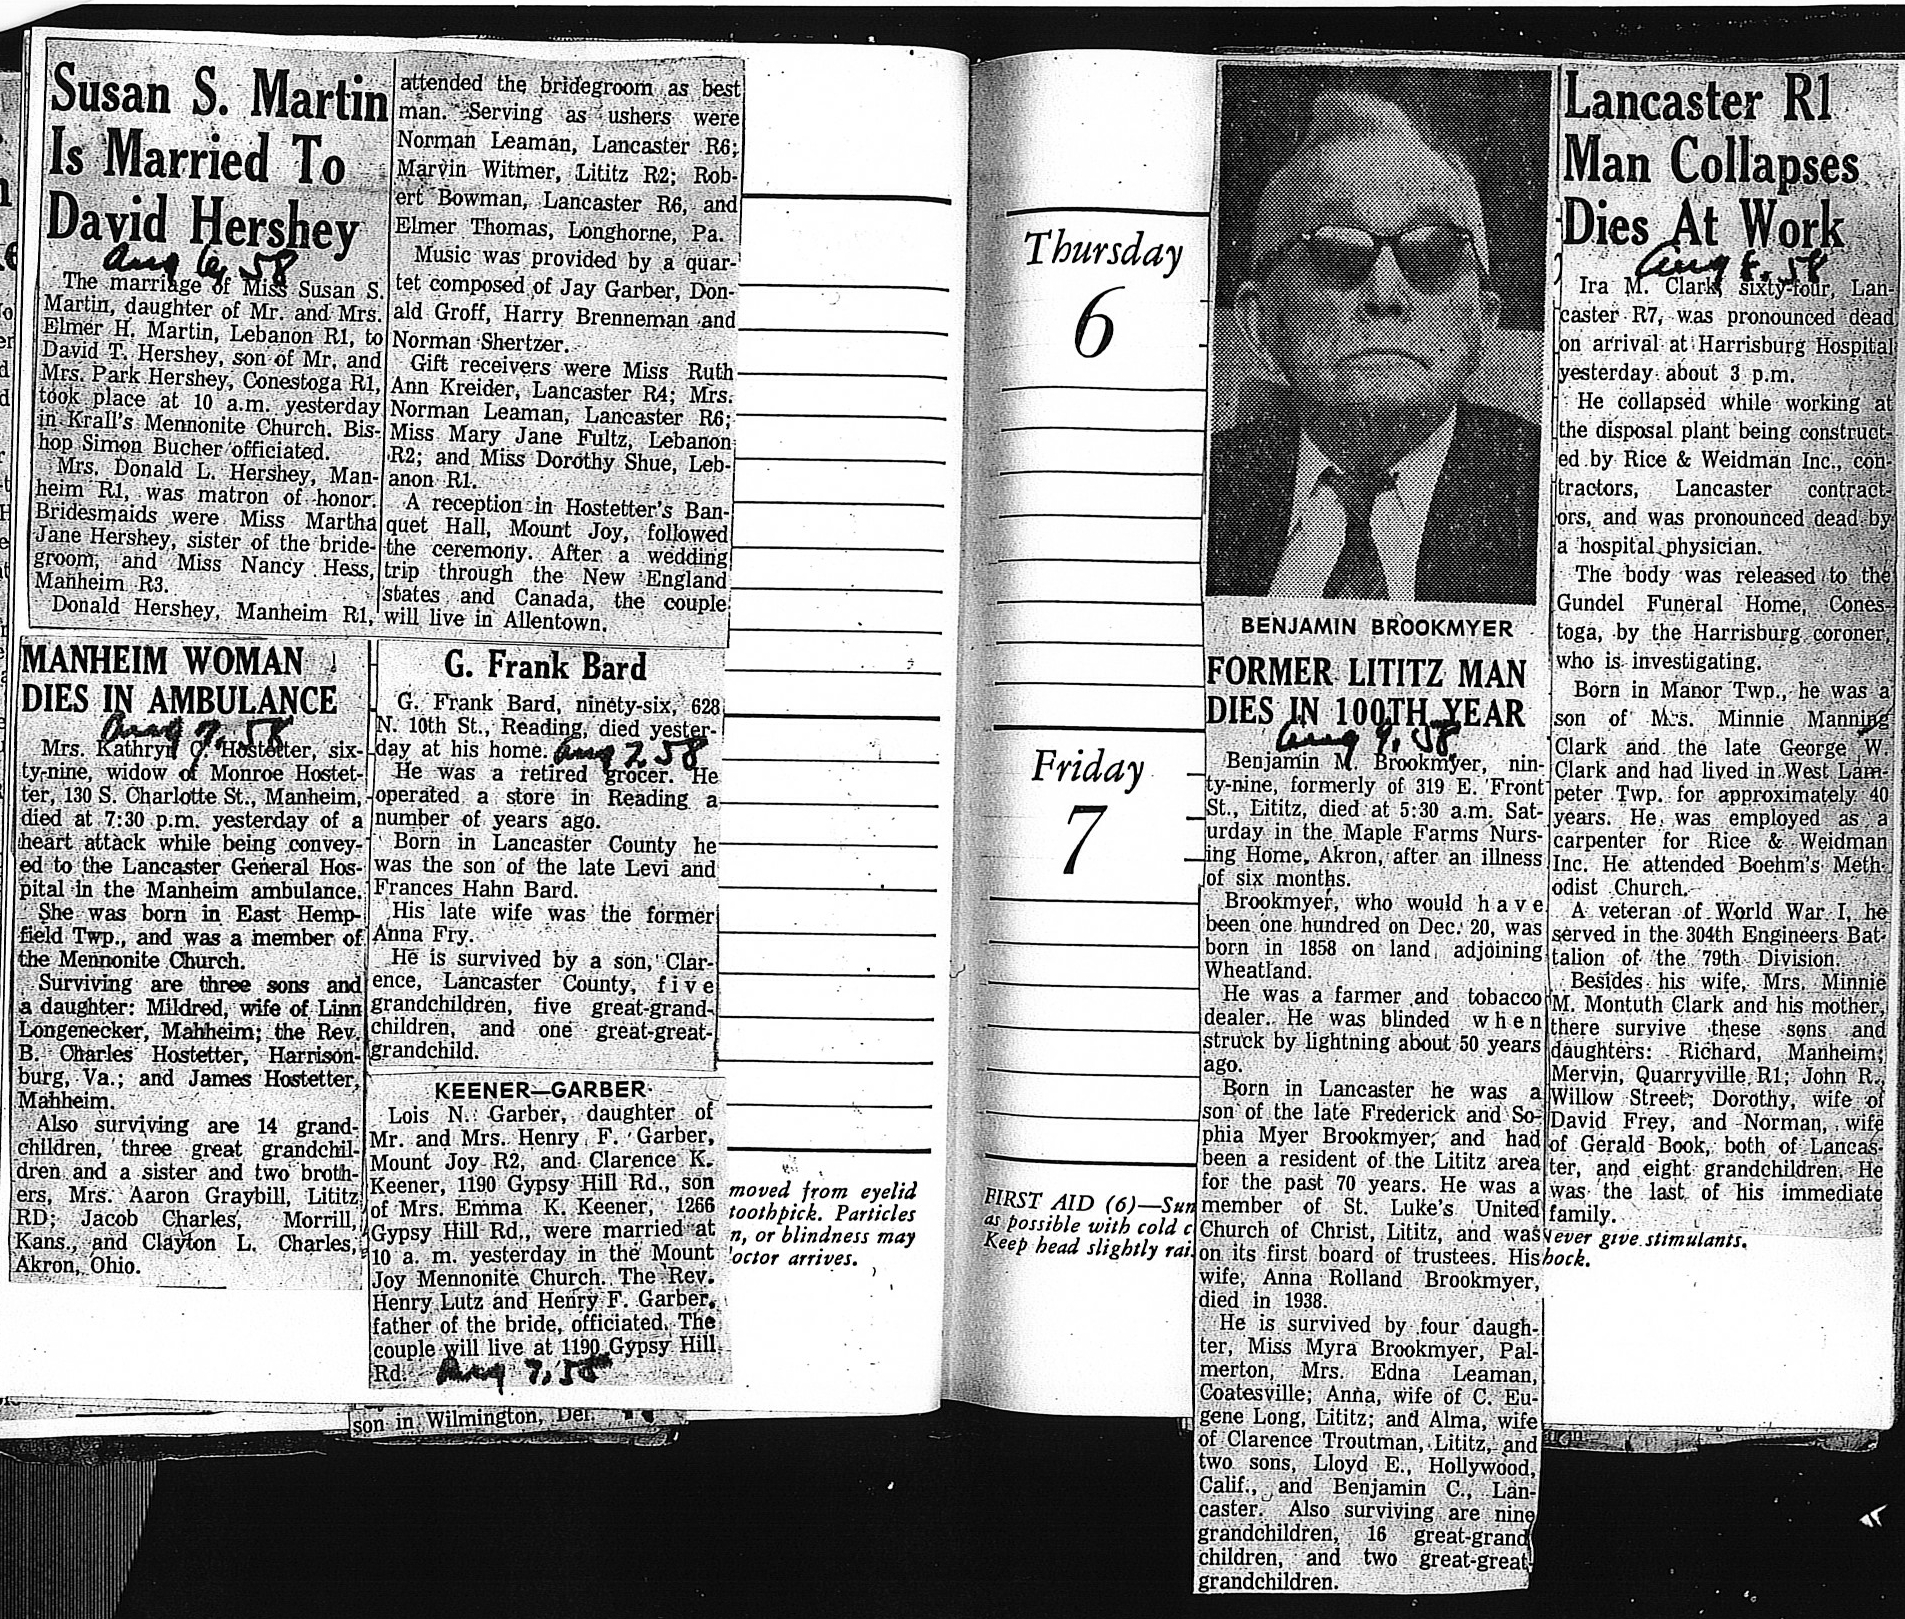 Susan S. Martin
Is Married To
David Hershey
Aug 6, 58
The marriage of Miss Susan S.
Martin, daughter of Mr. and Mrs.
Elmer H. Martin, Lebanon R1, to
David T. Hershey, son of Mr. and
Mrs. Park Hershey, Conestoga R1,
took place at 10 a.m. yesterday
in Krall's Mennonite Church. Bis-
hop Simon Bucher officiated.
Mrs. Donald L. Hershey, Man-
heim R1, was matron of honor.
Bridesmaids were Miss Martha
Jane Hershey, sister of the bride-
groom, and Miss Nancy Hess,
Manheim R3.
Donald Hershey, Manheim R1,
attended the bridegroom as best
man. Serving as ushers were
Norman Leaman, Lancaster R6;
Marvin Witmer, Lititz R2; Rob-
ert Bowman, Lancaster R6, and
Elmer Thomas, Longhorne, Pa.
Music was provided by a quar-
tet composed of Jay Garber, Don-
ald Groff, Harry Brenneman and
Norman Shertzer.
Gift receivers were Miss Ruth
Ann Kreider, Lancaster R4; Mrs.
Norman Leaman, Lancaster R6;
Miss Mary Jane Fultz, Lebanon
R2; and Miss Dorothy Shue, Leb-
anon R1.
A reception in Hostetter's Ban-
quet Hall, Mount Joy, followed
the ceremony. After a wedding
trip through the New England
states and Canada, the couple
will live in Allentown.
MANHEIM WOMAN
DIES IN AMBULANCE
Aug 7, 58
Mrs. Kathryn C. Hostetter, six-
ty-nine, widow of Monroe Hostet-
ter, 130 S. Charlotte St., Manheim,
died at 7:30 p.m. yesterday of a
heart attack while being convey-
ed to the Lancaster General Hos-
pital in the Manheim ambulance.
She was born in East Hemp-
field Twp., and was a member of
the Mennonite Church.
Surviving are three sons and
a daughter: Mildred, wife of Linn
Longenecker, Manheim; the Rev.
B. Charles Hostetter, Harrison-
burg, Va.; and James Hostetter,
Manheim.
Also surviving are 14 grand-
children, three great grandchil-
dren and a sister and two broth-
ers, Mrs. Aaron Graybill, Lititz
RD; Jacob Charles, Morrill,
Kans., and Clayton L. Charles,
Akron, Ohio.
G. Frank Bard
G. Frank Bard, ninety-six, 628
N. 10th St., Reading, died yester-
day at his home. Aug 7 58
He was a retired grocer. He
operated a store in Reading a
number of years ago.
Born in Lancaster County he
was the son of the late Levi and
Frances Hahn Bard.
His late wife was the former
Anna Fry.
He is survived by a son, Clar-
ence, Lancaster County, five
grandchildren, five great-grand-
children, and one great-great-
grandchild.
KEENER—GARBER
Lois N. Garber, daughter of
Mr. and Mrs. Henry F. Garber,
Mount Joy R2, and Clarence K.
Keener, 1190 Gypsy Hill Rd., son
of Mrs. Emma K. Keener, 1266
Gypsy Hill Rd., were married at
10 a. m. yesterday in the Mount
Joy Mennonite Church. The Rev.
Henry Lutz and Henry F. Garber,
father of the bride, officiated. The
couple will live at 1190 Gypsy Hill
Rd. Aug 7, 58
son in Wilmington, Del.
moved from eyelid
toothpick. Particles
n, or blindness may
octor arrives.
Thursday
6
Friday
7
FIRST AID (6)—Sun
as possible with cold c
Keep head slightly rai
ever give stimulants.
hock.
BENJAMIN BROOKMYER
FORMER LITITZ MAN
DIES IN 100TH YEAR
Aug 9, 58
Benjamin M. Brookmyer, nin-
ty-nine, formerly of 319 E. Front
St., Lititz, died at 5:30 a.m. Sat-
urday in the Maple Farms Nurs-
ing Home, Akron, after an illness
of six months.
Brookmyer, who would have
been one hundred on Dec. 20, was
born in 1858 on land adjoining
Wheatland.
He was a farmer and tobacco
dealer. He was blinded when
struck by lightning about 50 years
ago.
Born in Lancaster he was a
son of the late Frederick and So-
phia Myer Brookmyer, and had
been a resident of the Lititz area
for the past 70 years. He was a
member of St. Luke's United
Church of Christ, Lititz, and was
on its first board of trustees. His
wife, Anna Rolland Brookmyer,
died in 1938.
He is survived by four daugh-
ter, Miss Myra Brookmyer, Pal-
merton, Mrs. Edna Leaman,
Coatesville; Anna, wife of C. Eu-
gene Long, Lititz; and Alma, wife
of Clarence Troutman, Lititz, and
two sons, Lloyd E., Hollywood,
Calif., and Benjamin C., Lan-
caster. Also surviving are nine
grandchildren, 16 great-grand
children, and two great-great-
grandchildren.
Lancaster R1
Man Collapses
Dies At Work
Aug 8, 58
Ira M. Clark, sixty-four, Lan-
caster R7, was pronounced dead
on arrival at Harrisburg Hospital
yesterday about 3 p.m.
He collapsed while working at
the disposal plant being construct-
ed by Rice & Weidman Inc., con-
tractors, Lancaster contract-
ors, and was pronounced dead by
a hospital physician.
The body was released to the
Gundel Funeral Home, Cones-
toga, by the Harrisburg coroner,
who is investigating.
Born in Manor Twp., he was a
son of Mrs. Minnie Manning
Clark and the late George W.
Clark and had lived in West Lam-
peter Twp. for approximately 40
years. He was employed as a
carpenter for Rice & Weidman
Inc. He attended Boehm's Meth-
odist Church.
A veteran of World War I, he
served in the 304th Engineers Bat-
talion of the 79th Division.
Besides his wife, Mrs. Minnie
M. Montuth Clark and his mother,
there survive these sons and
daughters: Richard, Manheim;
Mervin, Quarryville R1; John R.,
Willow Street; Dorothy, wife of
David Frey, and Norman, wife
of Gerald Book, both of Lancas-
ter, and eight grandchildren. He
was the last of his immediate
family.